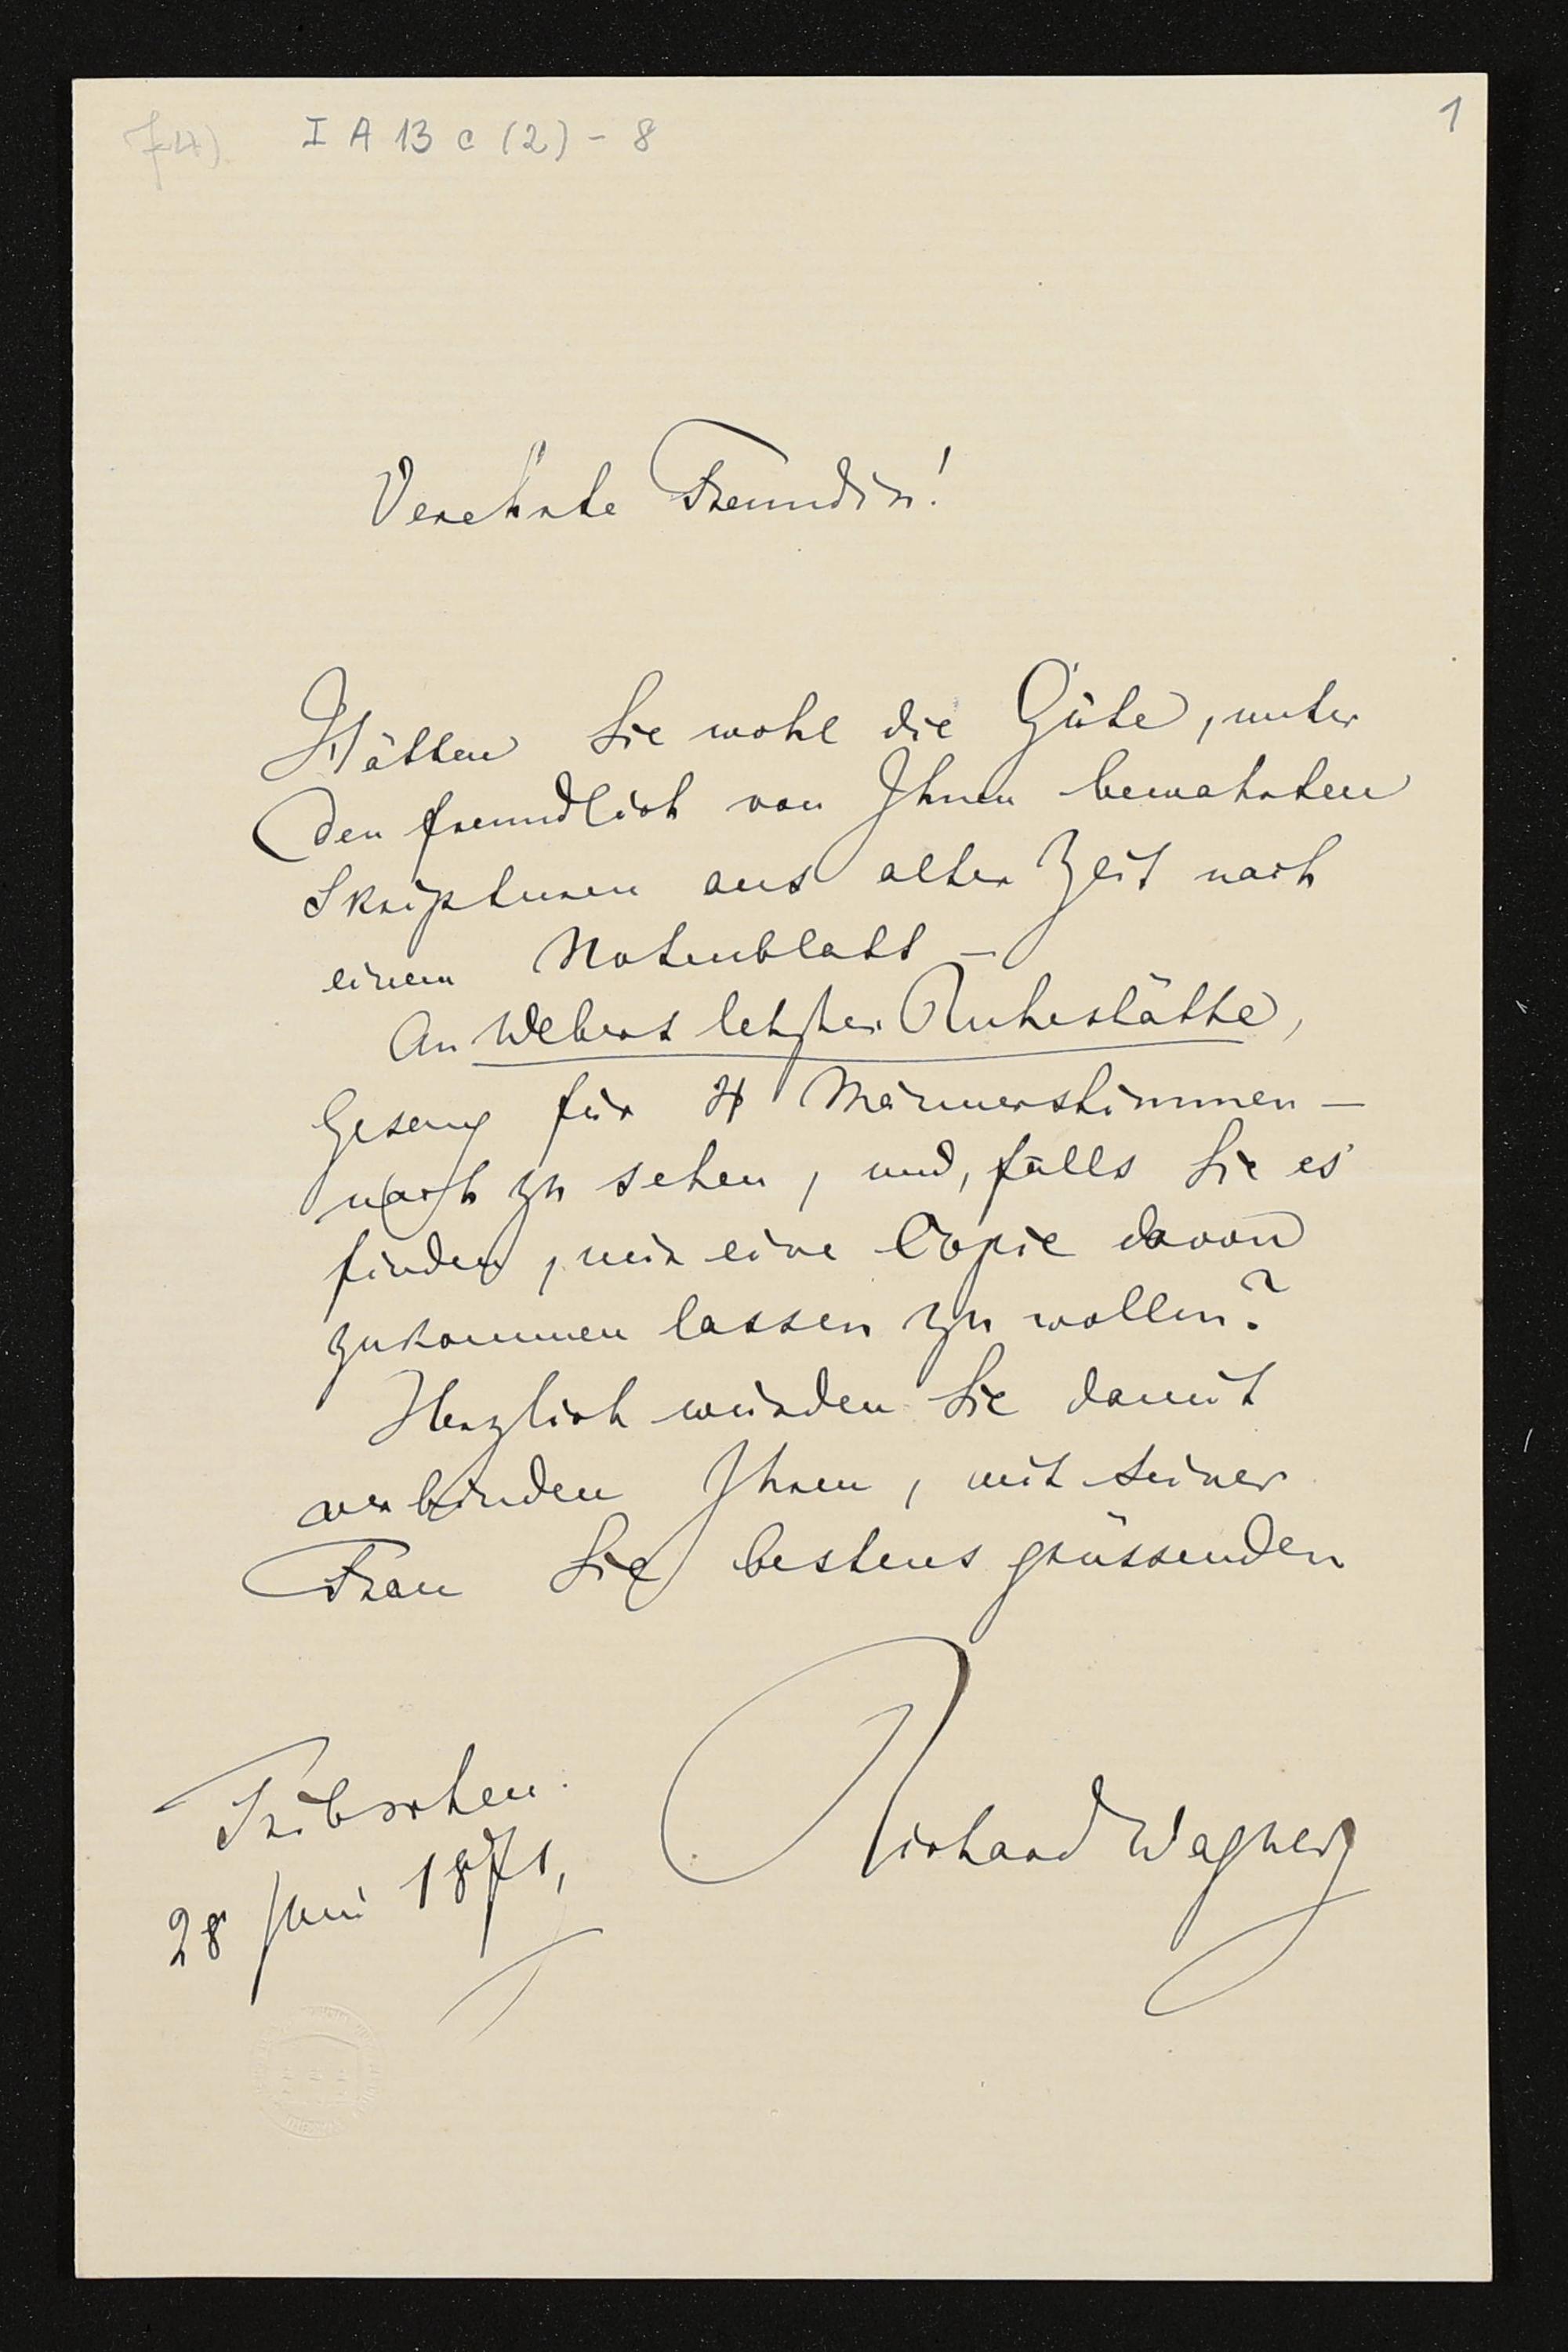 74)
I A 13 c (2) - 8
1
Verehrte Freundin!
Hätten Sie wohl die Güte, unter
den freundlich von Ihnen bewahrten
Skripturen aus alter Zeit nach
einem Notenblatt –
An Webers letzter Ruhestätte,
Gesang für 4 Männerstimmen –
nach zu sehen, und, falls Sie es
finden, mir eine Copie davon
zukommen lassen zu wollen?
Herzlich würden Sie damit
verbinden Ihren, mit seiner
Frau Sie bestens grüssenden
Richard Wagner
Tribschen.
28 Juni 1871,